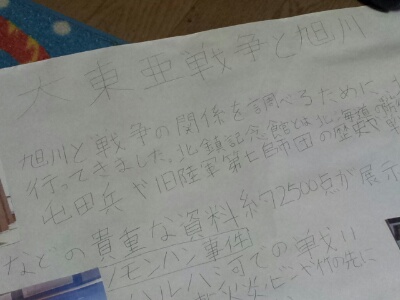 大東亜戦争と旭川
旭川と戦争の関係を調べるために、北
行ってきました。北鎮記念館とは北海道の
屯田兵や旧陸軍第七師団の歴史や
などの貴重な資料約2500点が展示
ノモンハン事件
ハルハ河での戦い
火炎ビンや竹の先に